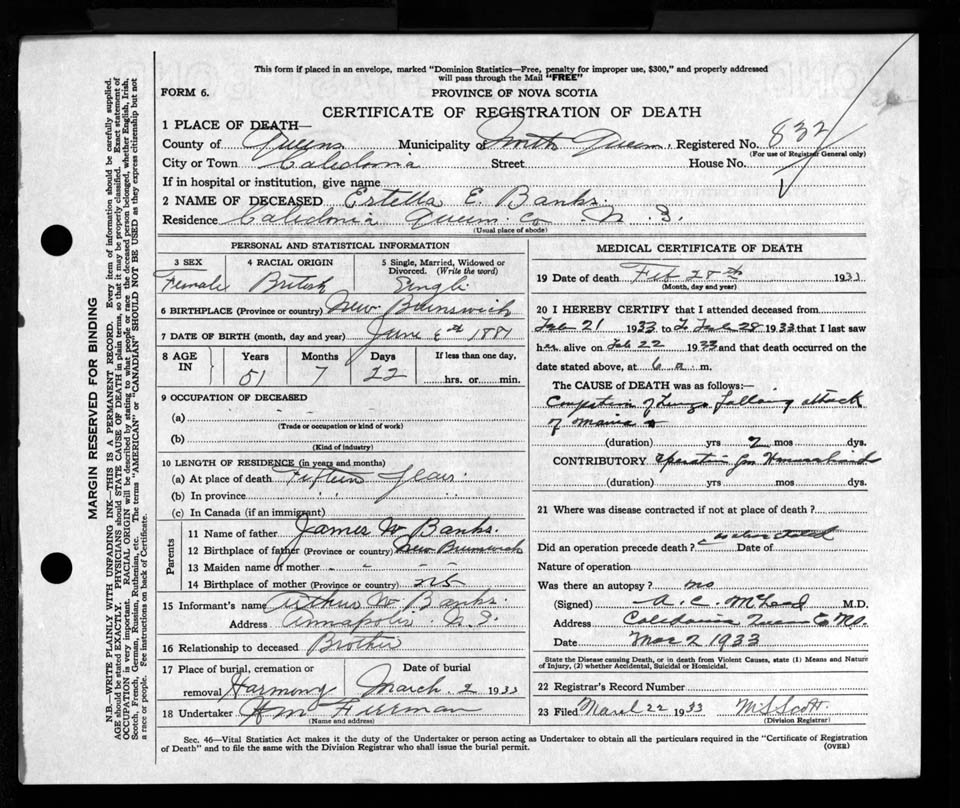 This form if placed in an envelope, marked "Dominion Statistics—Free, penalty for improper use, $300," and properly addressed
will pass through the Mail "FREE"
FORM 6.
PROVINCE OF NOVA SCOTIA
CERTIFICATE OF REGISTRATION OF DEATH
1 PLACE OF DEATH—
County of Queens Municipality of North Queens, Registered No. 832
(For use of Registrar General only)
City or Town Caledonia Street House No.
If in hospital or institution, give name
2 NAME OF DECEASED Estella E. Banks.
Residence Caledonia Queens Co N. S.
(Usual place of abode)
PERSONAL AND STATISTICAL INFORMATION
3 SEX 4 RACIAL ORIGIN 5 Single, Married, Widowed or
Divorced. (Write the word)
Female British Single
6 BIRTHPLACE (Province or country) New Brunswick
7 DATE OF BIRTH (month, day and year) June 6th 1881
8 AGE IN Years Months Days If less than one day,
51 7 22 hrs. or min.
9 OCCUPATION OF DECEASED
(a)
(Trade or occupation or kind of work)
(b)
(Kind of industry)
10 LENGTH OF RESIDENCE (in years and months)
(a) At place of death Fifteen Years
(b) In province " "
(c) In Canada (if an immigrant)
Parents
11 Name of father James W Banks.
12 Birthplace of father (Province or country) New Brunswick
13 Maiden name of mother - - - -
14 Birthplace of mother (Province or country)
15 Informant's name Arthur W. Banks.
Address Annapolis N. S.
16 Relationship to deceased Brother
17 Place of burial, cremation or Date of burial
removal Harmony March 2 1933
18 Undertaker Wm Freeman
(Name and address)
MEDICAL CERTIFICATE OF DEATH
19 Date of death Feb 28th 1933
(Month, day and year)
20 I HEREBY CERTIFY that I attended deceased from
Feb 21 1933 to Feb 28 1933 that I last saw
her alive on Feb 22 1933 and that death occurred on the
date stated above, at 6 a. m.
The CAUSE of DEATH was as follows:—
of Lungs following attack
of mania
(duration) yrs 2 mos dys.
CONTRIBUTORY Operation for
(duration) yrs. mos. dys.
21 Where was disease contracted if not at place of death?
Did an operation precede death? Date of
Nature of operation
Was there an autopsy? no
(Signed) A. C. McLeod M.D.
Address Caledonia Queens Co
Date Mar 2 1933
State the Disease causing Death, or in death from Violent Causes, state (1) Means and Nature
of Injury, (2) whether Accidental, Suicidal or Homicidal.
22 Registrar's Record Number
23 Filed March 22 1933 M S Scott.
(Division Registrar)
Sec. 46—Vital Statistics Act makes it the duty of the Undertaker or person acting as Undertaker to obtain all the particulars required in the "Certificate of Registration
of Death" and to file the same with the Division Registrar who shall issue the burial permit.
(OVER)
MARGIN RESERVED FOR BINDING
N.B.—WRITE PLAINLY WITH UNFADING INK—THIS IS A PERMANENT RECORD. Every item of information should be carefully supplied.
AGE should be stated EXACTLY. PHYSICIANS should STATE CAUSE OF DEATH in plain terms, so that it may be properly classified. Exact statement of
OCCUPATION is very important. RACIAL ORIGIN will be described by stating to what people or race the deceased person belonged, whether English, Irish,
Scotch, French, German, Russian, Ruthenian, etc. The terms "AMERICAN" or "CANADIAN" SHOULD NOT BE USED as they express citizenship but not
a race or people. See instructions on back of Certificate.